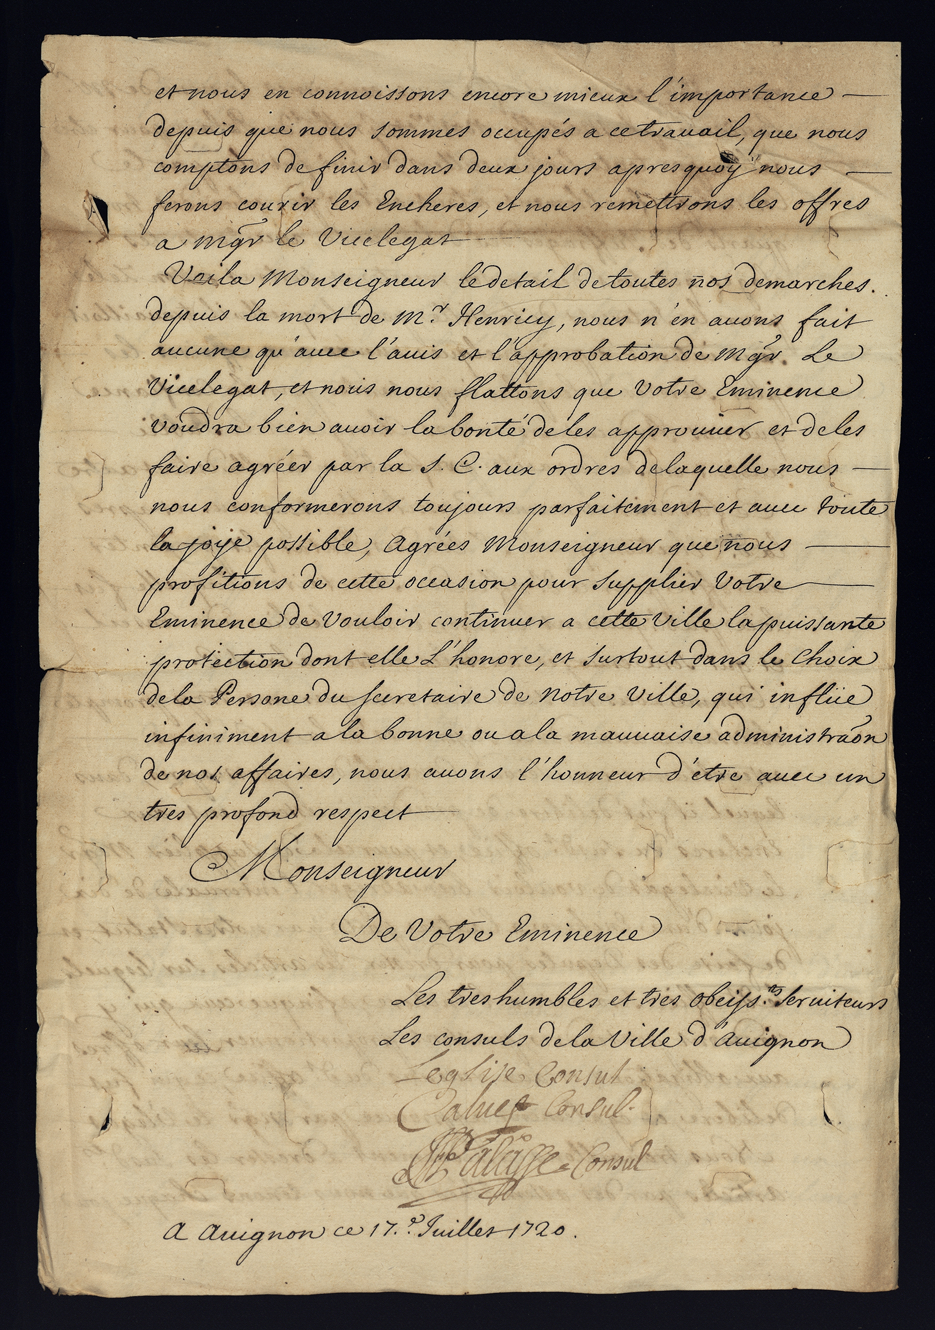 et nous en connoissons encore mieux l'importance
depuis que nous sommes occupés a ce travail, que nous
comptons de finir dans deux jours apres quoy nous
ferons courir les Encheres, et nous remettrons les offres
a Mgr le Vicelegat
Voila Monseigneur le detail de toutes nos demarches.
depuis la mort de Mr. Henricy, nous n'en auons fait
aucune qu'auec l'auis et l'approbation de Mgr. Le
Vicelegat, et nous nous flattons que Votre Eminence
voudra bien auoir la bonté de les approuuer et de les
faire agréer par la S. C. aux ordres de laquelle nous
nous conformerons toujours parfaitement et auec toute
la joye possible, Agrées Monseigneur que nous
profitions de cette occasion pour supplier Votre
Eminence de Vouloir continuer a cette Ville la puissante
protection dont elle L'honore, et surtout dans le Choix
de la Persone du secretaire de notre Ville, qui influe
infiniment a la bonne ou a la mauuaise administraõn
de nos affaires, nous auons l'honneur d'etre auec un
tres profond respect
Monseigneur
De Votre Eminence
Les tres humbles et tres obeiss.ts Seruiteurs
Les consuls de la Ville d'Auignon
Consul
Consul.
Consul
A Auignon ce 17.e Juillet 1720.